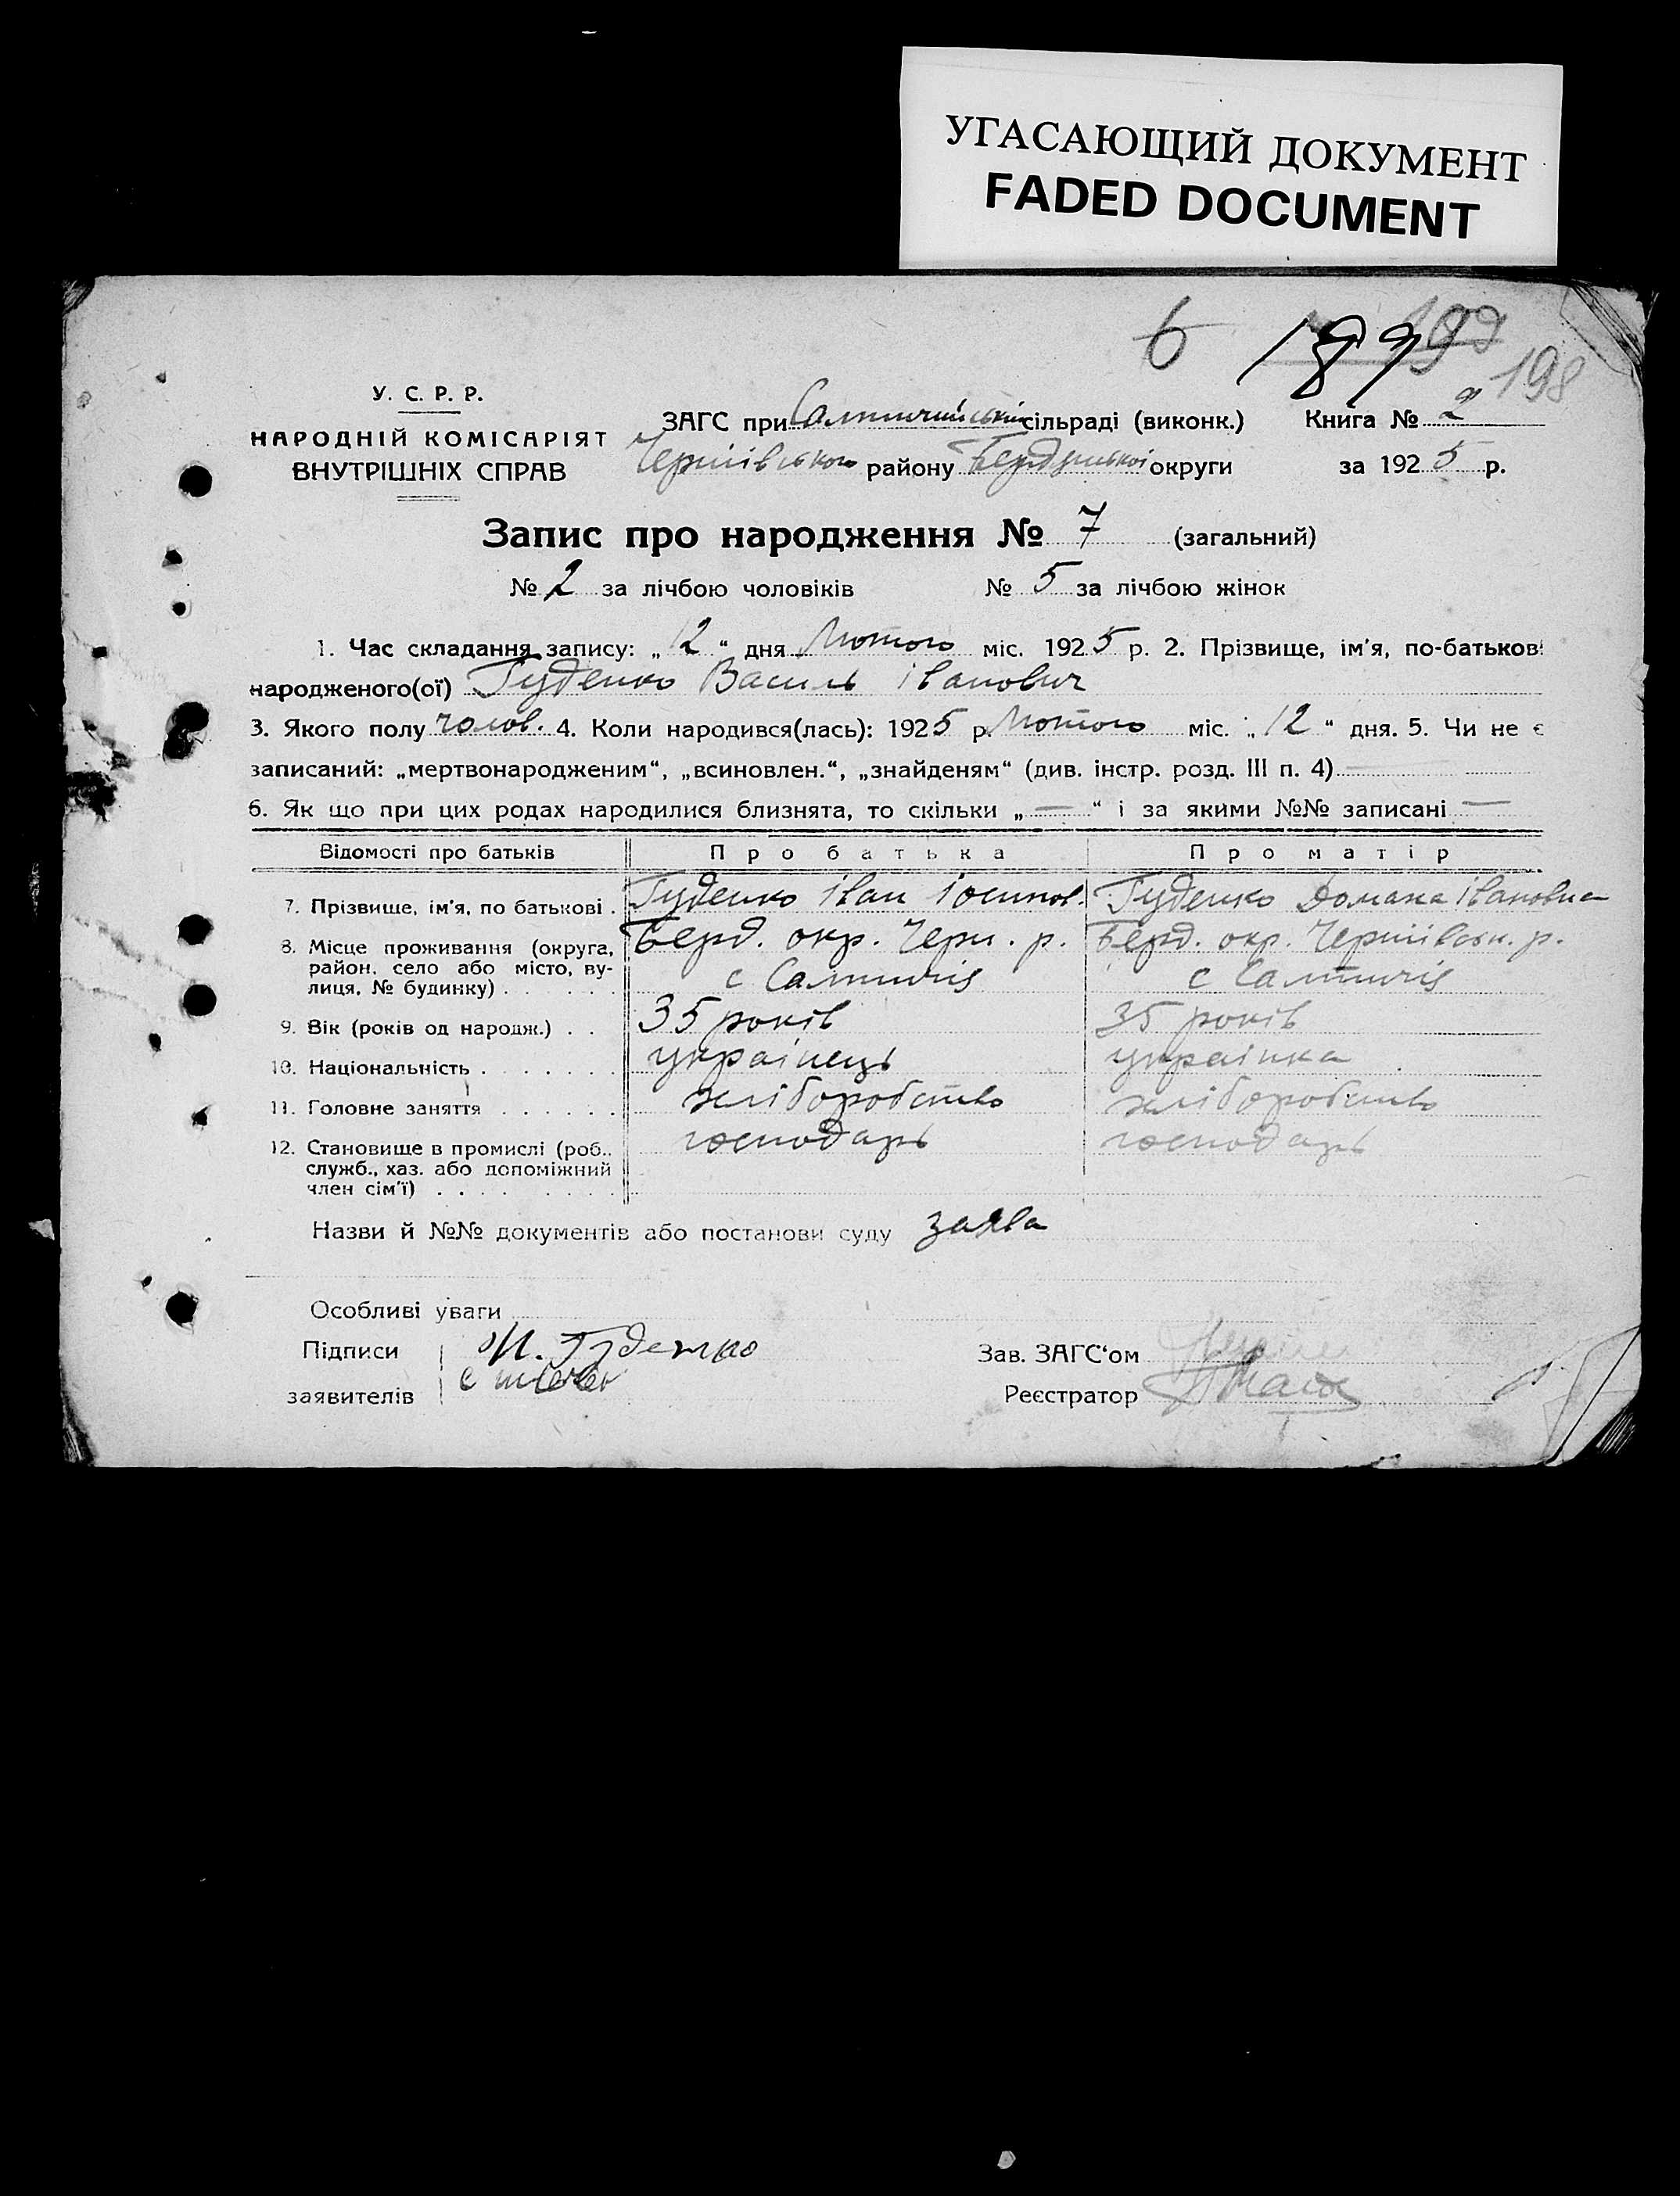 УГАСАЮЩИЙ ДОКУМЕНТ
FADED DOCUMENT
6 198
У. С. Р. Р.
НАРОДНІЙ КОМІСАРІЯТ
ВНУТРІШНІХ СПРАВ
ЗАГС при Салтичийській сільраді (виконк.) Книга № 2
Чернівського району Бердянської округи за 1925 р.
Запис про народження № 7 (загальний)
№ 2 за лічбою чоловіків № 5 за лічбою жінок
1. Час складання запису: „12“ дня Лютого міс. 1925 р. 2. Прізвище, ім'я, по-батькові
народженого(ої) Гуденко Василь Іванович
3. Якого полу чолов. 4. Коли народився(лась): 1925 р. Лютого міс. „12“ дня. 5. Чи не є
записаний: „мертвонародженим“, „всиновлен.“, „знайденям“ (див. інстр. розд. III п. 4) —
6. Як що при цих родах народилися близнята, то скільки „—“ і за якими №№ записані —
Відомості про батьків Про батька Про матір
7. Прізвище, ім'я, по батькові . Гуденко Іван Іосипов. Гуденко Домаха Івановна
8. Місце проживання (округа, район, село або місто, вулиця, № будинку) . . . . . Берд. окр. Черн. р. с Салтичія Берд. окр. Чернівськ. р. с Салтичія
9. Вік (років од народж.) . . 35 років 35 років
10. Національність . . . . . . . українець українка
11. Головне заняття . . . . . . хліборобство хліборобство
12. Становище в промислі (роб., служб., хаз. або допоміжний член сім'ї) . . . . . . . . господарь господарь
Назви й №№ документів або постанови суду заява
Особливі уваги
Підписи И. Гуденко
заявителів
Зав. ЗАГС‘ом
Реєстратор